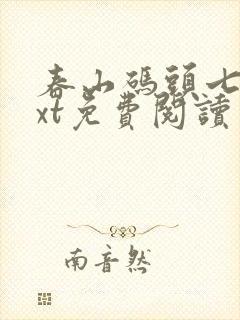 春山碼頭七
xt免費閱讀
南音然